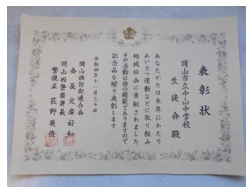 表彰状
岡山市立中山中学校
生徒会殿
あなたがたは永年にわたり
あいさつ運動などに取り組み
地域社会に貢献されました
その活動は他の模範でありますので
記念品を贈り表彰します
令和四年十一月二十日
岡山西防犯連合会
会長 定廣好和
岡山西警察署長
警視正 荻野英俊